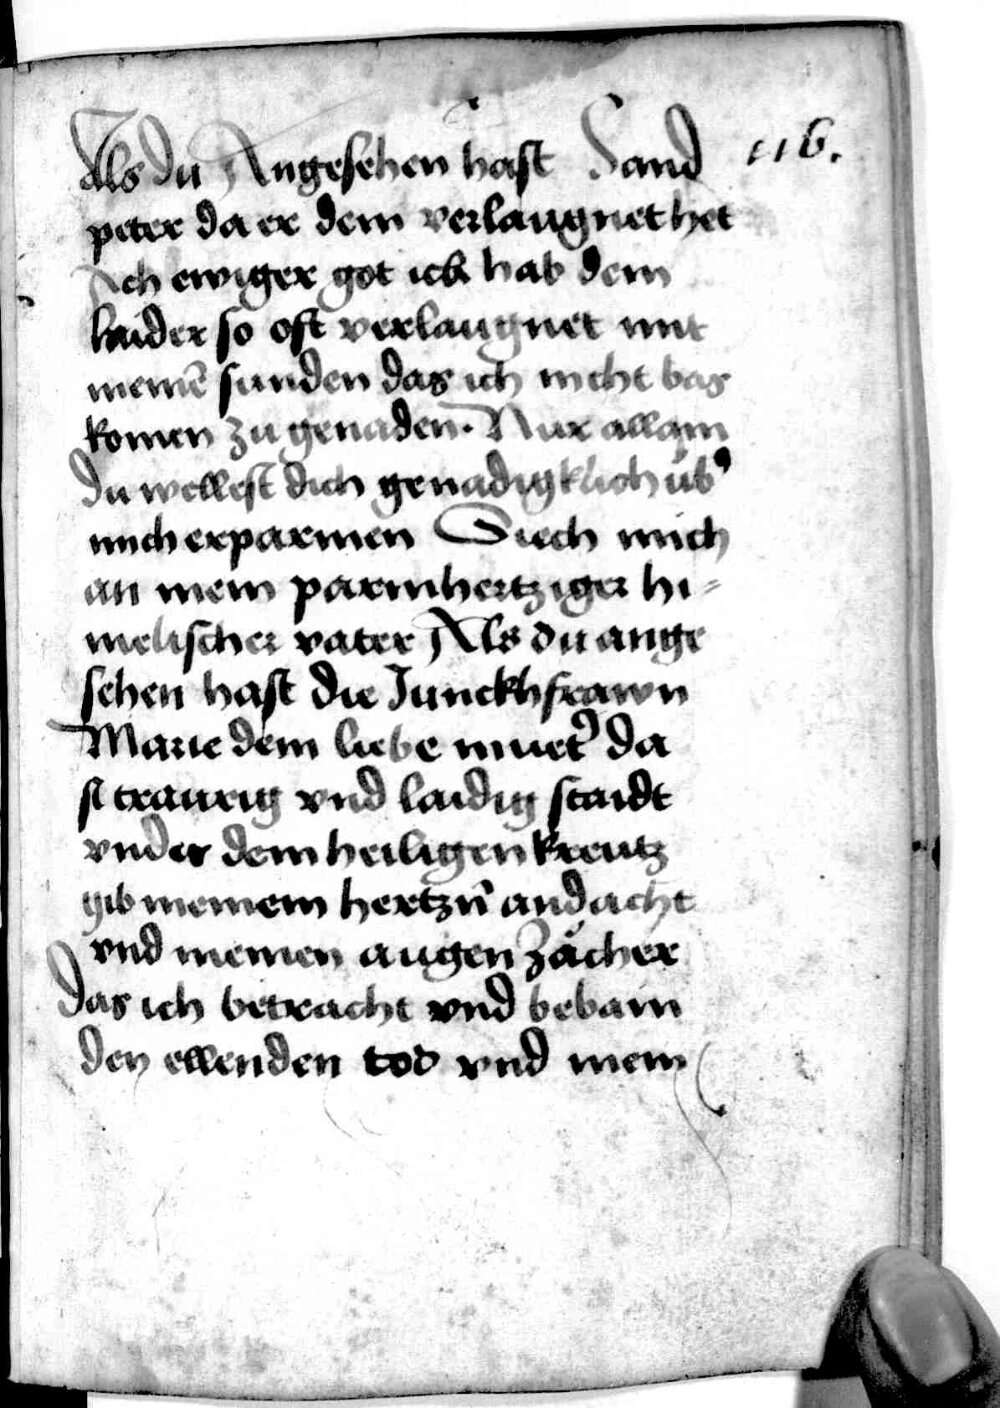 Als du Angesehen hast Sand 116.
peter da er dein verlaugnet het
Ach ewiger got ich hab dein
laider so oft verlaugnet mit
meinē sunden das ich nicht bas
komen zu genaden. Nur allain
du wellest dich genadigklich üb⁹
mich erparmen Siech mich
an mein parmhertziger hi-
melischer vater Als du ange
sehen hast die Junckhfrawn
Marie dein liebe muet⁹ da
si traurig vnd laidig staidt
vnder dem heiligen kreutz
gib meinem hertzn̄ andacht
vnd meinen augen Zächer
das ich betracht vnd bebain
den ellenden tod vnd mein